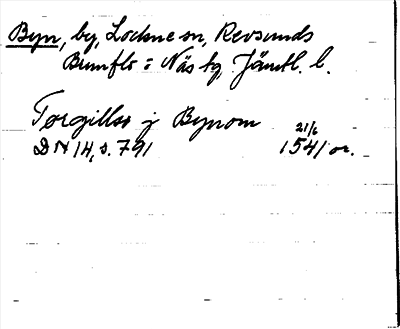 Byn, by, Lockne sn, Revsunds
Brunflo o Näs tg Jämtl. l.
Torgillss j Bynom
21/6
DN 14, s. 791 1541 or.